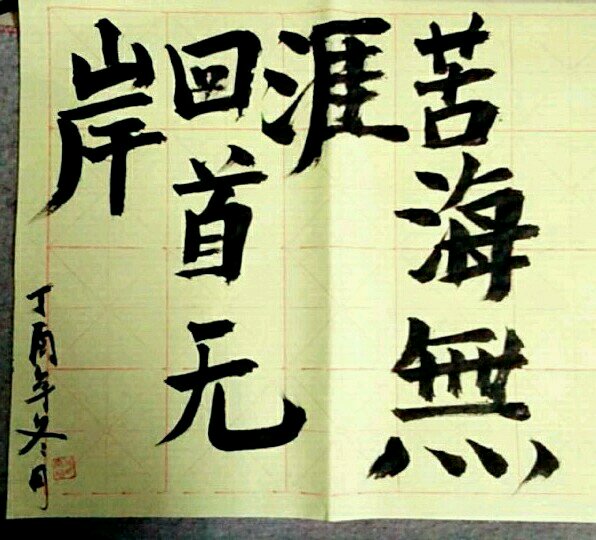 苦海無
涯
回首无
岸
丁酉年冬月